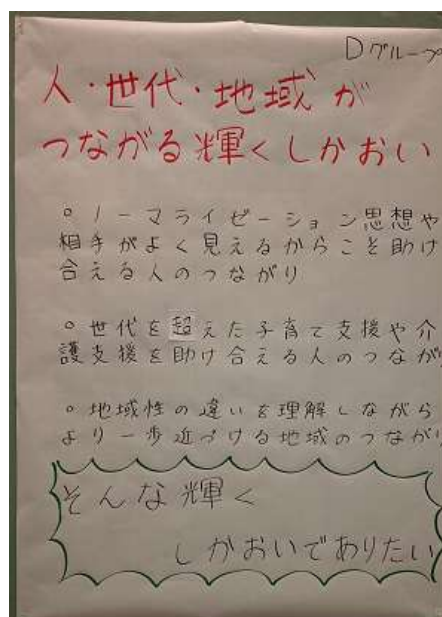 Dグループ
人・世代・地域が
つながる輝くしかおい
。ノーマライゼーション思想や
相手がよく見えるからこそ助け
合える人のつながり
。世代を超えた子育て支援や介
護支援を助け合える人のつながり
。地域性の違いを理解しながら
より一歩近づける地域のつながり
そんな輝く
しかおいでありたい